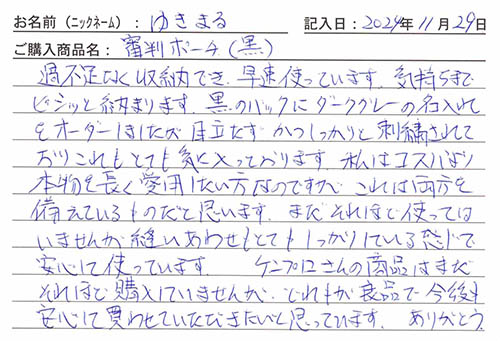 お名前（ニックネーム）：ゆきまる 記入日：2024年11月29日
ご購入商品名：審判ポーチ（黒）
過不足なく収納でき、早速使っています。気持ちまで
ビシッと納まります。黒のバックにダークグレーの名入れ
をオーダーしましたが目立たず かつしっかりと刺繍されて
おりこれもとても気に入っております。私はコスパより
本物を長く愛用したい方なのですが これは両方を
備えているものだと思います。まだそれほど使っては
いませんが縫いあわせもとてもしっかりしている感じで
安心して使っています ケンプロさんの商品はまだ
それほど購入していませんが、どれもが良品で今後も
安心して買わせていただきたいと思っています。 ありがとう。